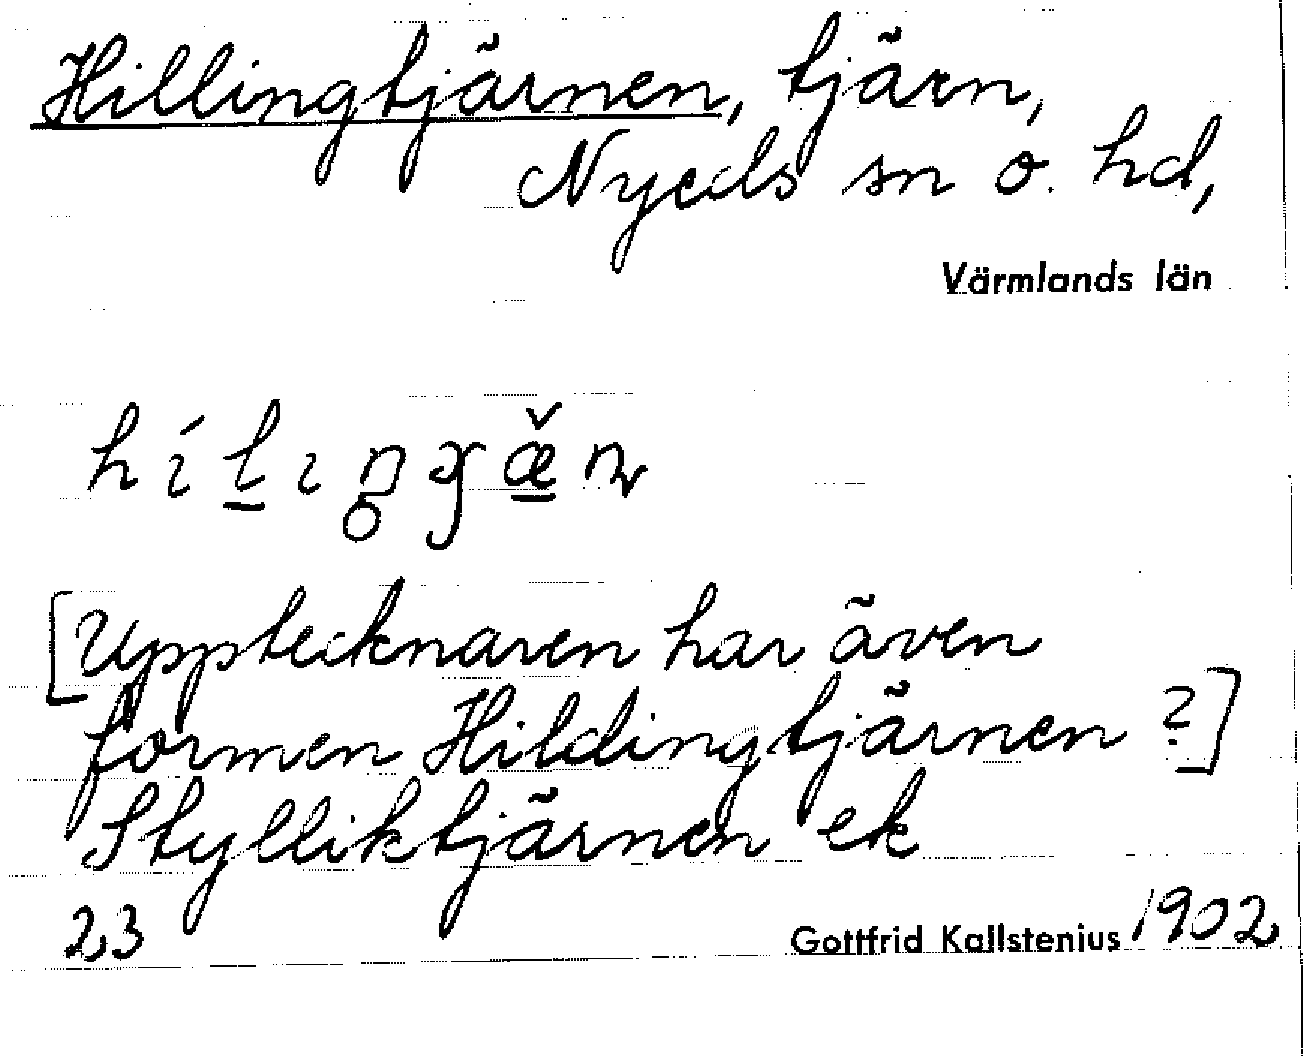 Hillingtjärnen, tjärn,
Nyeds sn o. hd,
Värmlands län
[Upptecknaren har även
formen Hildingtjärnen ?]
Stylliktjärnen ek
23 Gottfrid Kallstenius 1902